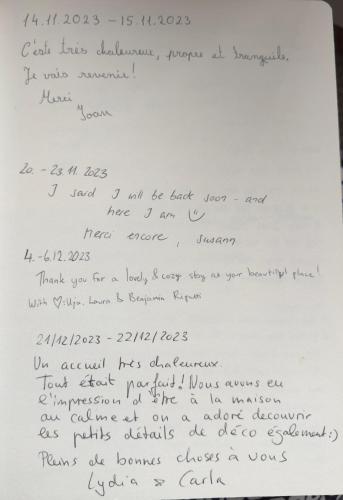 14.11.2023 - 15.11.2023
C'este très chaleureux, propre et tranquile.
Je vais revenir!
Merci
Joan
20. - 23.11.2023
I said I will be back soon - and
here I am ☺
Merci encore, Susann
4.-6.12.2023
Thank you for a lovely & cozy stay at your beautiful place!
With ♡: Laura & Benjamin
21/12/2023 - 22/12/2023
Un accueil très chaleureux.
Tout était parfait! Nous avons eu
l'impression d'être à la maison
au calme et on a adoré decouvrir
les petits détails de déco également :)
Pleins de bonnes choses à vous
Lydia & Carla